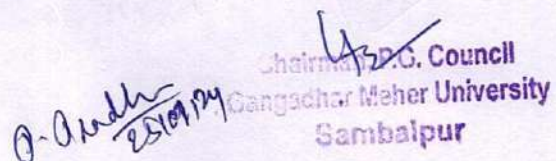 Chairman, P.G. Council
Gangadhar Meher University
Sambalpur
25/09/24